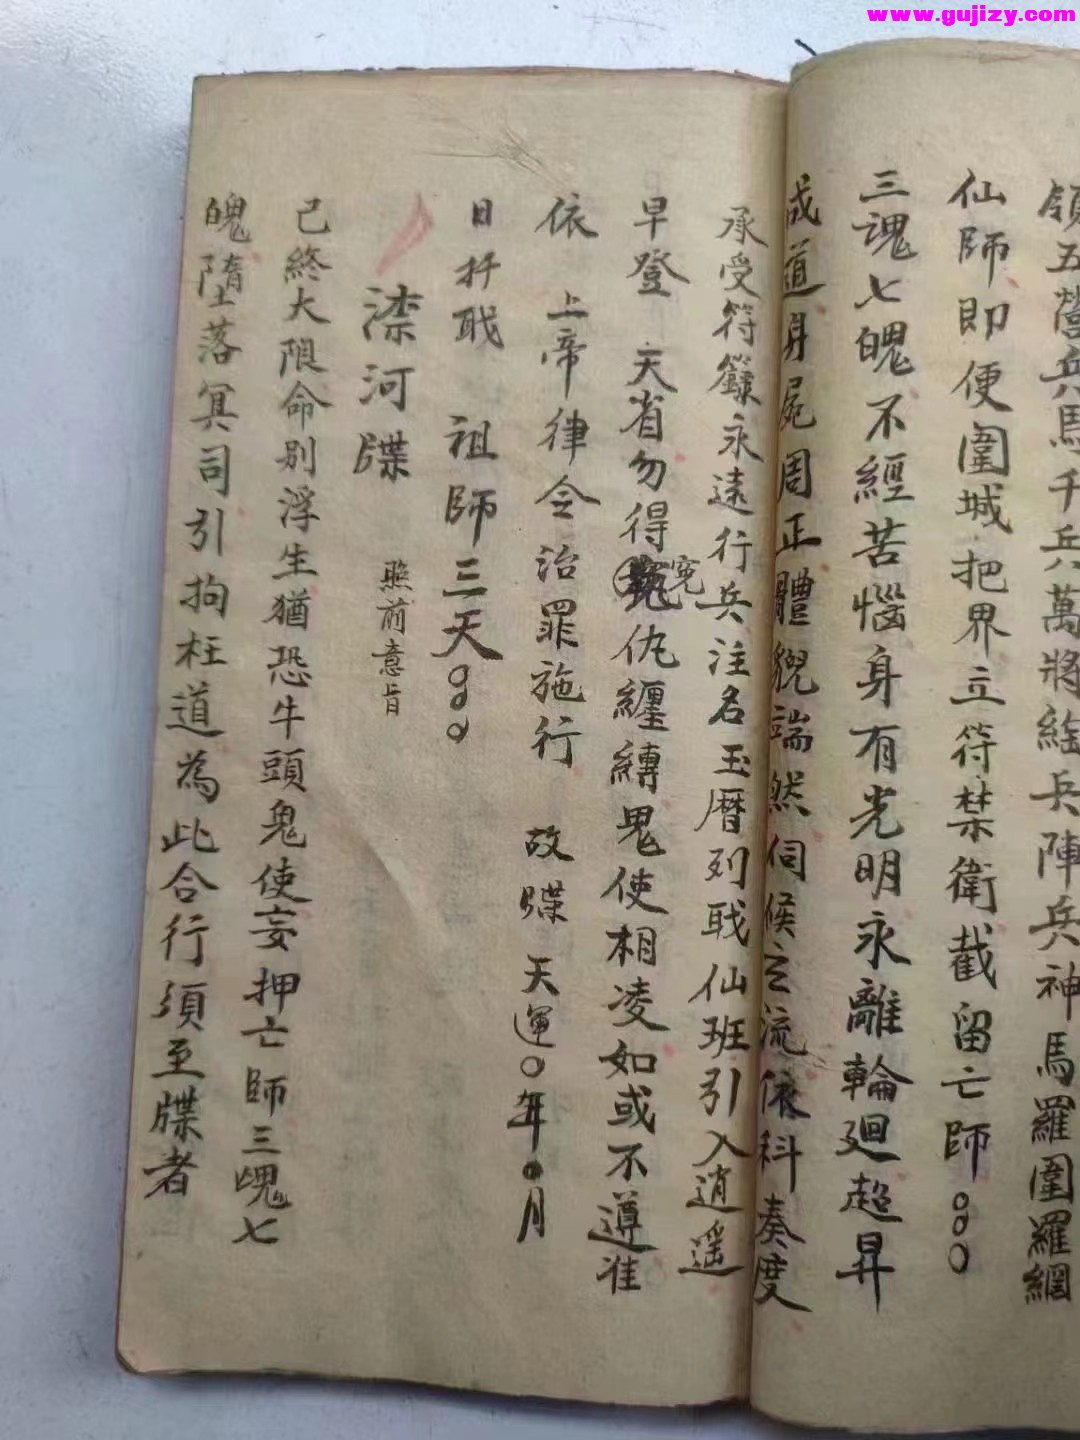 www.gujizy.com
領五營兵馬千兵萬將絟兵陣兵神馬羅圍羅網
仙師即便圍城把界立符禁衛截留亡師。。。
三魂七魄不經苦惱身有光明永離輪廻超昇
成道身屍周正體貌端然伺候之流依科奏度
承受符籙永遠行兵注名玉曆列职仙班引入逍遥
早登 天省勿得冤仇纒縛鬼使相凌如或不遵准
依 上帝律令治罪施行 故牒 天運〇年〇月
日 职 祖師三天。。。
滦河牒 照前意旨
已終大限命别浮生猶恐牛頭鬼使妄押亡師三魂七
魄墮落冥司引拘枉道為此合行須至牒者